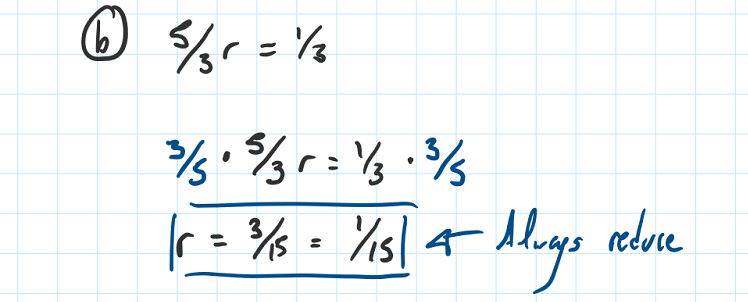 b 5/3 r = 1/3
3/5 · 5/3 r = 1/3 · 3/5
r = 3/15 = 1/15 ← Always reduce